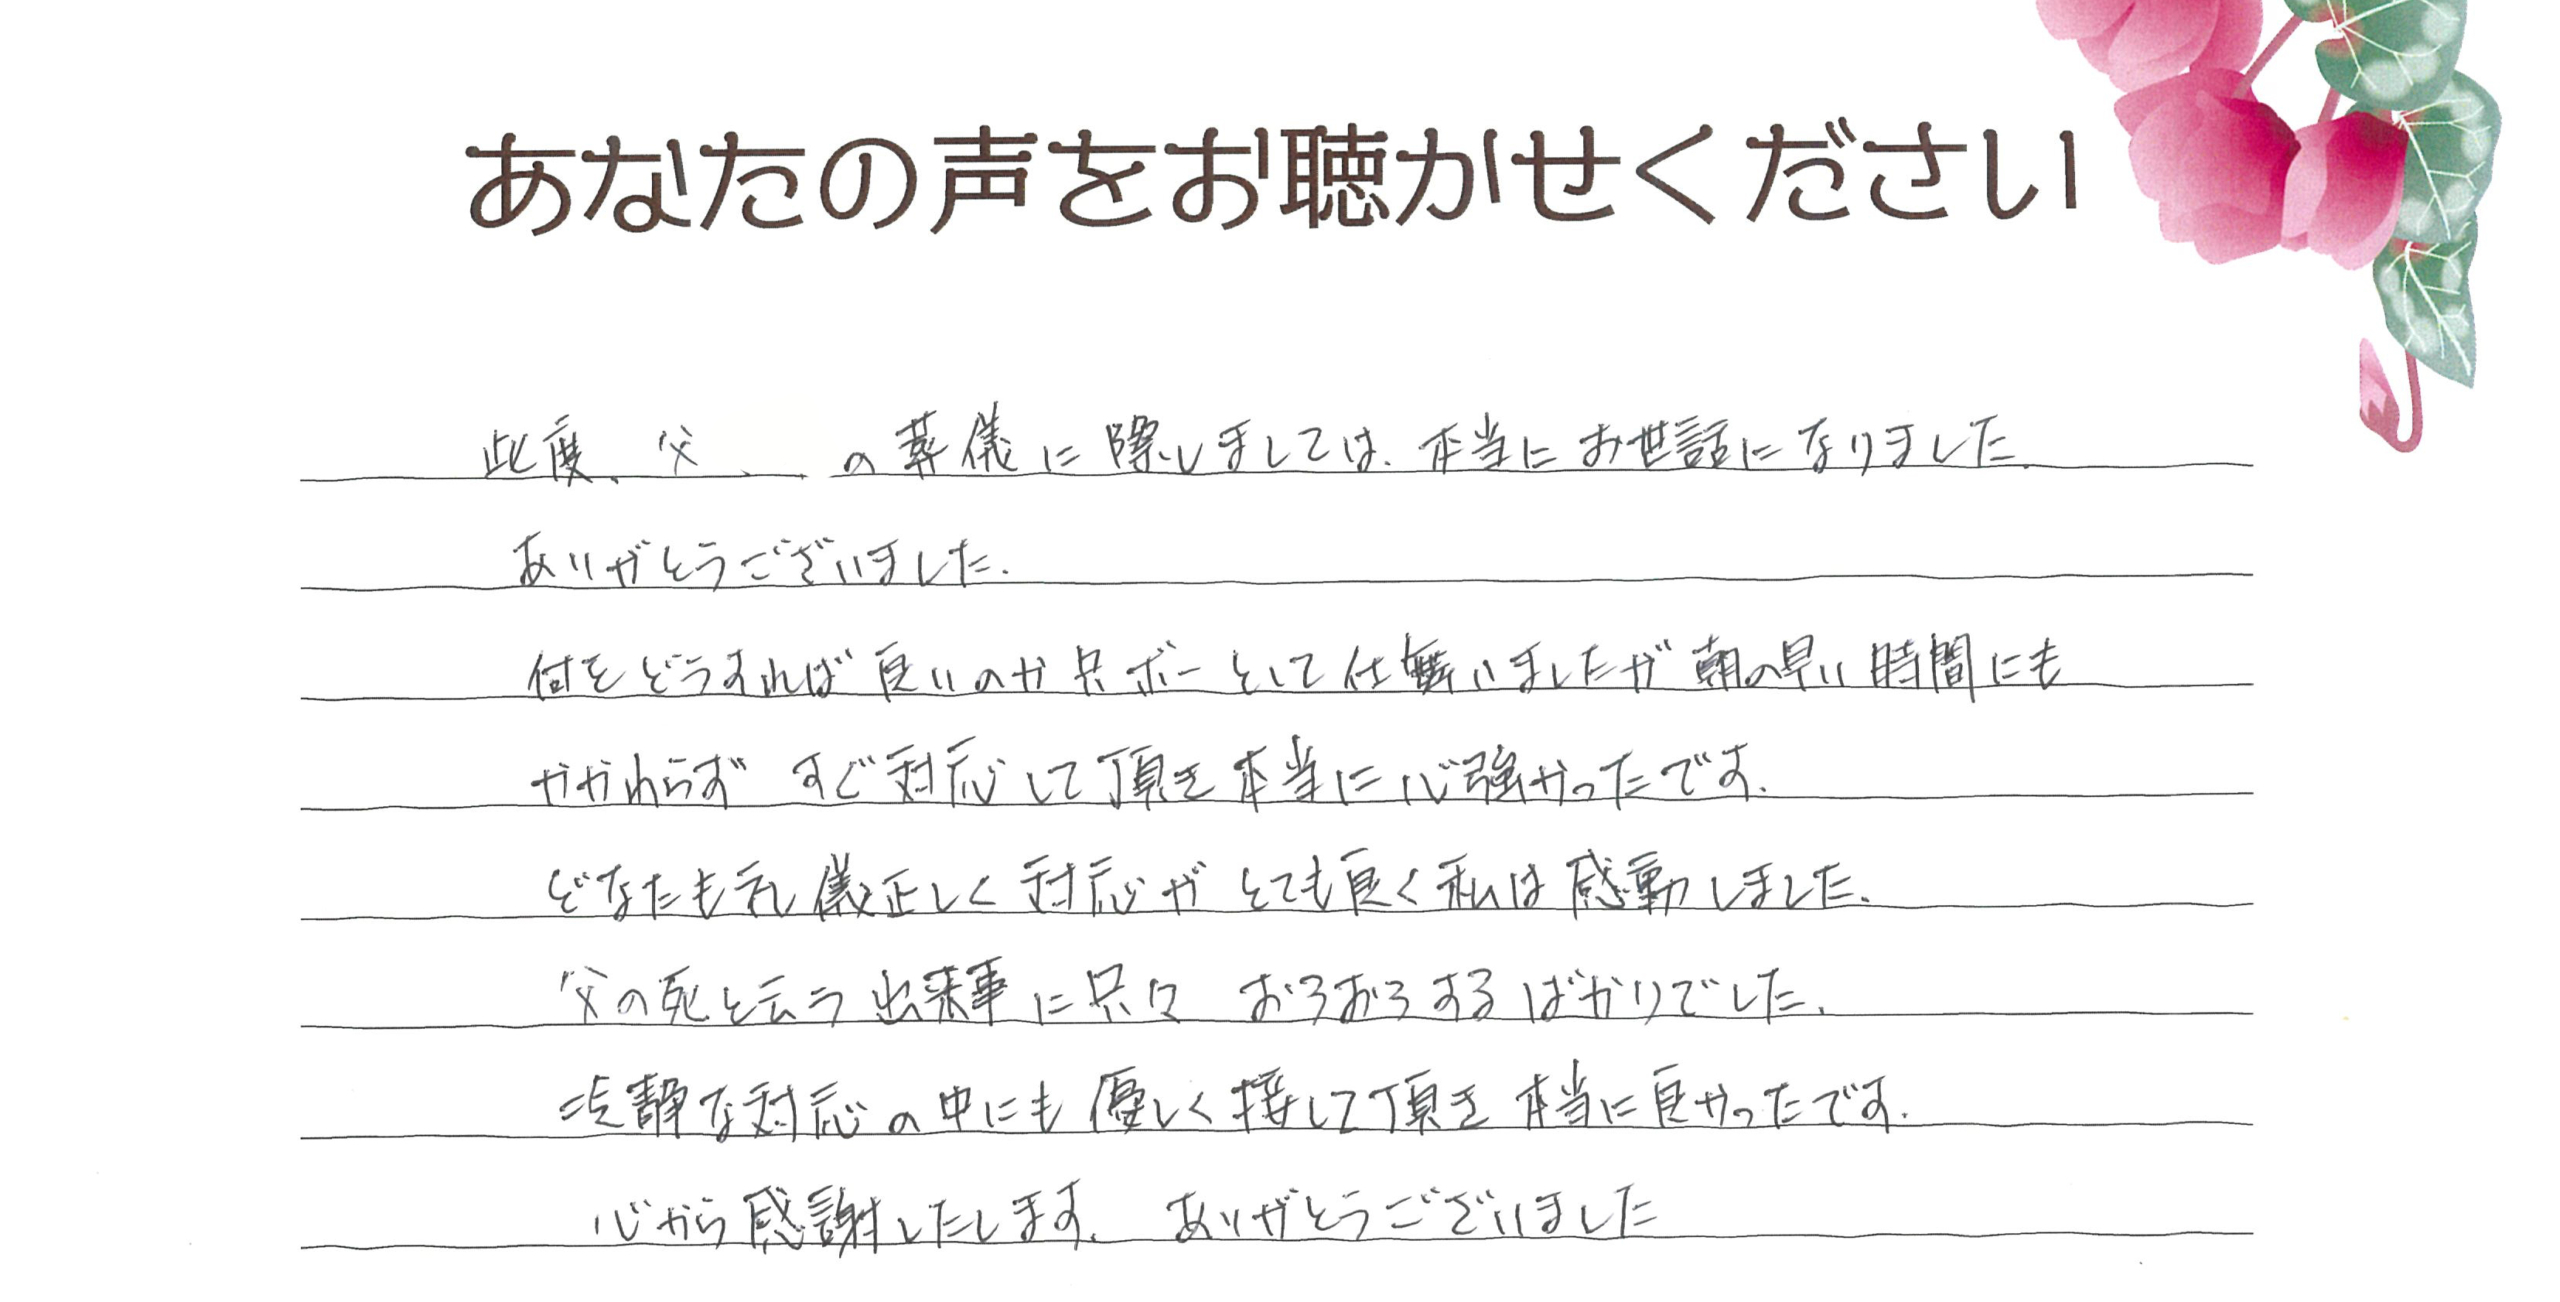 あなたの声をお聴かせください
此度、父 の葬儀に際しましては、本当にお世話になりました。
ありがとうございました。
何をどうすれば良いのか只ボーとして仕舞いましたが朝の早い時間にも
かかわらず すぐ対応して頂き本当に心強かったです。
どなたも礼儀正しく対応がとても良く私は感動しました。
父の死と云う出来事に只々 おろおろするばかりでした。
冷静な対応の中にも優しく接して頂き本当に良かったです。
心から感謝したします。 ありがとうございました